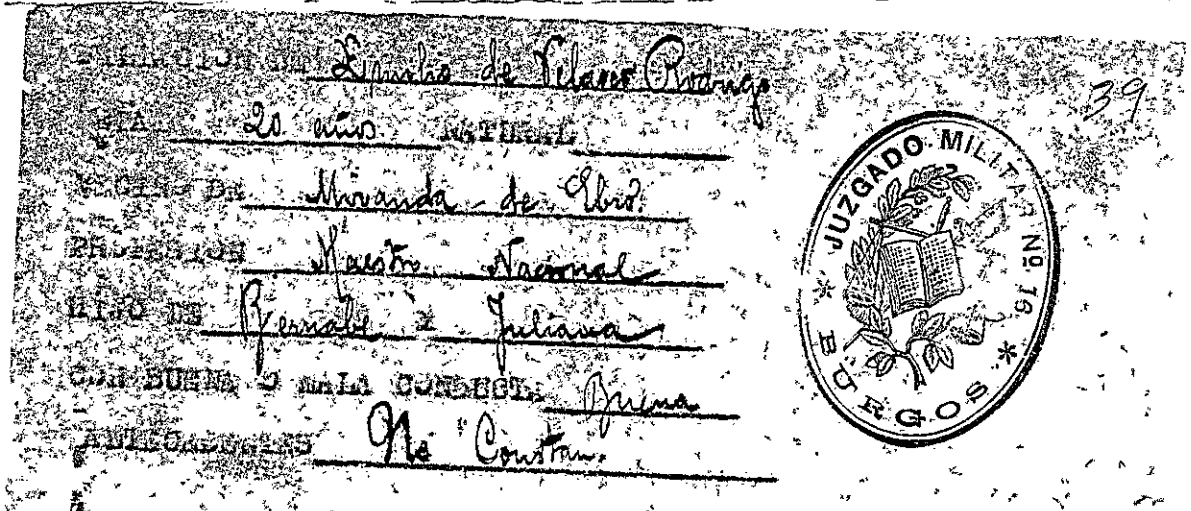 FILIACION DE Emilio de Velasco Rodrigo
39
EDAD 20 años. NATURAL
VECINO DE Miranda de Ebro.
PROFESION Maestro Nacional
HIJO DE Bernabe y Juliana
CON BUENA O MALA CONDUCTA Buena
ANTECEDENTES No Constan.
JUZGADO MILITAR Nº. 16
* BURGOS *